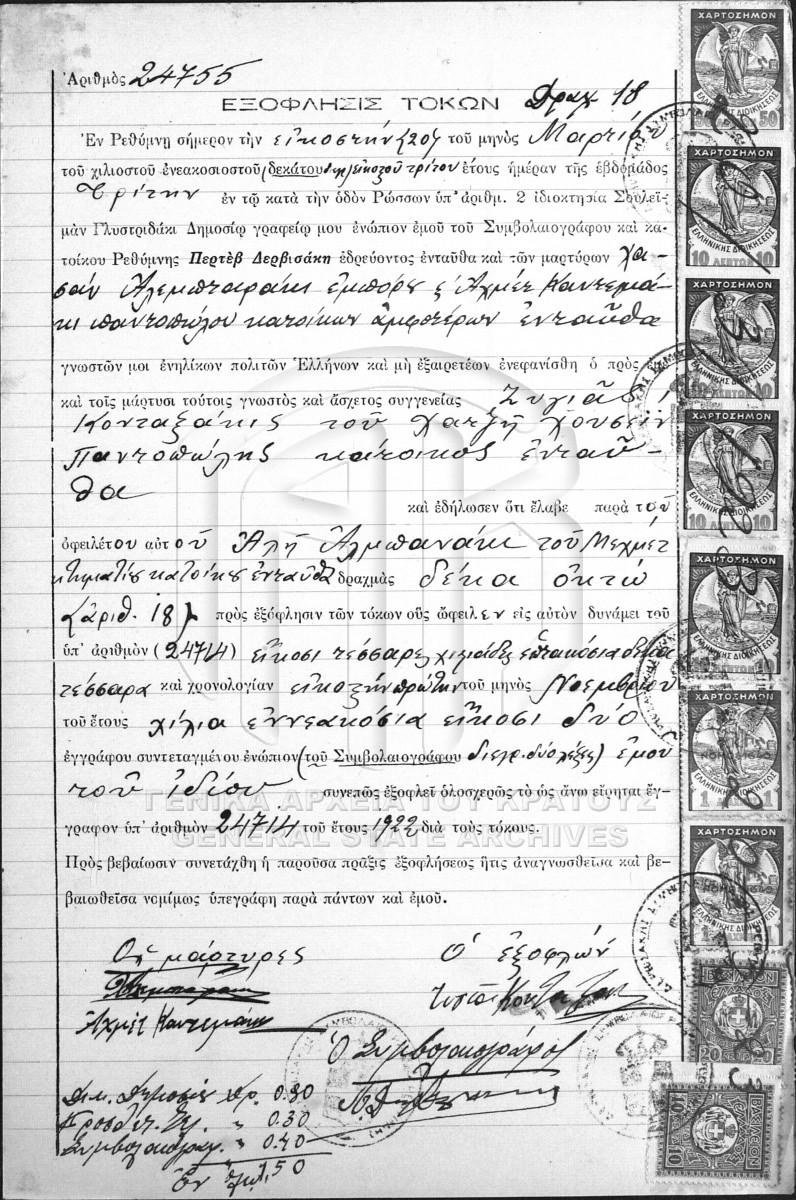 Ἀριθμὸς 24755
ΕΞΟΦΛΗΣΙΣ ΤΟΚΩΝ Δραχ. 18
Ἐν Ρεθύμνῃ σήμερον τὴν εἰκοστὴν (20) τοῦ μηνὸς Μαρτίου
τοῦ χιλιοστοῦ ἐνεακοσιοστοῦ (δεκάτου εἰκοστοῦ τρίτου ἔτους ἡμέραν τῆς ἑβδομάδος
Τρίτην ἐν τῷ κατὰ τὴν ὁδὸν Ρώσσων ὑπ' ἀριθμ. 2 ἰδιοκτησία Σουλεϊ-
μὰν Γλυστριδάκι Δημοσίῳ γραφείῳ μου ἐνώπιον ἐμοῦ τοῦ Συμβολαιογράφου καὶ κα-
τοίκου Ρεθύμνης Περτὲβ Δερβισάκη ἑδρεύοντος ἐνταῦθα καὶ τῶν μαρτύρων Χα-
σὰν ἐμπόρου Ἀχμὲτ Καντερμά-
κι παντοπώλου κατοίκων ἀμφοτέρων ἐνταῦθα
γνωστῶν μοι ἐνηλίκων πολιτῶν Ἑλλήνων καὶ μὴ ἐξαιρετέων ἐνεφανίσθη ὁ πρὸς ἐμὲ
καὶ τοῖς μάρτυσι τούτοις γνωστὸς καὶ ἄσχετος συγγενείας
Κονταξάκις τοῦ Χατζῆ Χουσεῒν
Παντοπώλης κάτοικος ἐνταῦ-
θα
καὶ ἐδήλωσεν ὅτι ἔλαβε παρὰ τοῦ
ὀφειλέτου αὐτοῦ Ἀλῆ Ἀλμπανάκι τοῦ Μεχμὲτ
κτηματίου κατοίκου ἐνταῦθα δραχμὰς δέκα ὀκτὼ
(ἀριθ. 18) πρὸς ἐξόφλησιν τῶν τόκων οὓς ὤφειλεν εἰς αὐτὸν δυνάμει τοῦ
ὑπ' ἀριθμὸν (24714) εἴκοσι τέσσαρες χιλιάδες ἑπτακόσια δέκα
τέσσαρα καὶ χρονολογίαν εἰκοστὴν πρώτην τοῦ μηνὸς Νοεμβρίου
τοῦ ἔτους χίλια ἐννεακόσια εἴκοσι δύο
ἐγγράφου συντεταγμένου ἐνώπιον (τοῦ Συμβολαιογράφου διεγρ. δύο λέξεις) ἐμοῦ
τοῦ ἰδίου συνεπῶς ἐξοφλεῖ ὁλοσχερῶς τὸ ὡς ἄνω εἴρηται ἔγ-
γραφον ὑπ' ἀριθμὸν 24714 τοῦ ἔτους 1922 διὰ τοὺς τόκους.
Πρὸς βεβαίωσιν συνετάχθη ἡ παροῦσα πρᾶξις ἐξοφλήσεως ἥτις ἀναγνωσθεῖσα καὶ βε-
βαιωθεῖσα νομίμως ὑπεγράφη παρὰ πάντων καὶ ἐμοῦ.
Οἱ μάρτυρες Ὁ ἐξοφλῶν
Ἀχμὲτ Καντερμάκι
Ὁ Συμβολαιογράφος
Δημοσίου Δρ. 0.80
" 0.30
Συμβολαιογραφ. " 0.40
Ἐν ὅλῳ 1,50
ΓΕΝΙΚΑ ΑΡΧΕΙΑ ΤΟΥ ΚΡΑΤΟΥΣ
GENERAL STATE ARCHIVES
ΧΑΡΤΟΣΗΜΟΝ
ΕΛΛΗΝΙΚΗΣ ΔΙΟΙΚΗΣΕΩΣ
50
ΧΑΡΤΟΣΗΜΟΝ
ΕΛΛΗΝΙΚΗΣ ΔΙΟΙΚΗΣΕΩΣ
10 ΛΕΠΤΩΝ 10
ΧΑΡΤΟΣΗΜΟΝ
ΕΛΛΗΝΙΚΗΣ ΔΙΟΙΚΗΣΕΩΣ
10
ΧΑΡΤΟΣΗΜΟΝ
ΕΛΛΗΝΙΚΗΣ ΔΙΟΙΚΗΣΕΩΣ
10 ΛΕΠΤΩΝ 10
ΧΑΡΤΟΣΗΜΟΝ
ΕΛΛΗΝΙΚΗΣ ΔΙΟΙΚΗΣΕΩΣ
ΛΕΠΤΩΝ
ΧΑΡΤΟΣΗΜΟΝ
ΕΛΛΗΝΙΚΗΣ ΔΙΟΙΚΗΣΕΩΣ
1 1
ΧΑΡΤΟΣΗΜΟΝ
ΕΛΛΗΝΙΚΗΣ ΔΙΟΙΚΗΣΕΩΣ
1 1
ΒΑΣΙΛΕΙΟΝ
20
ΒΑΣΙΛΕΙΟΝ
10 10